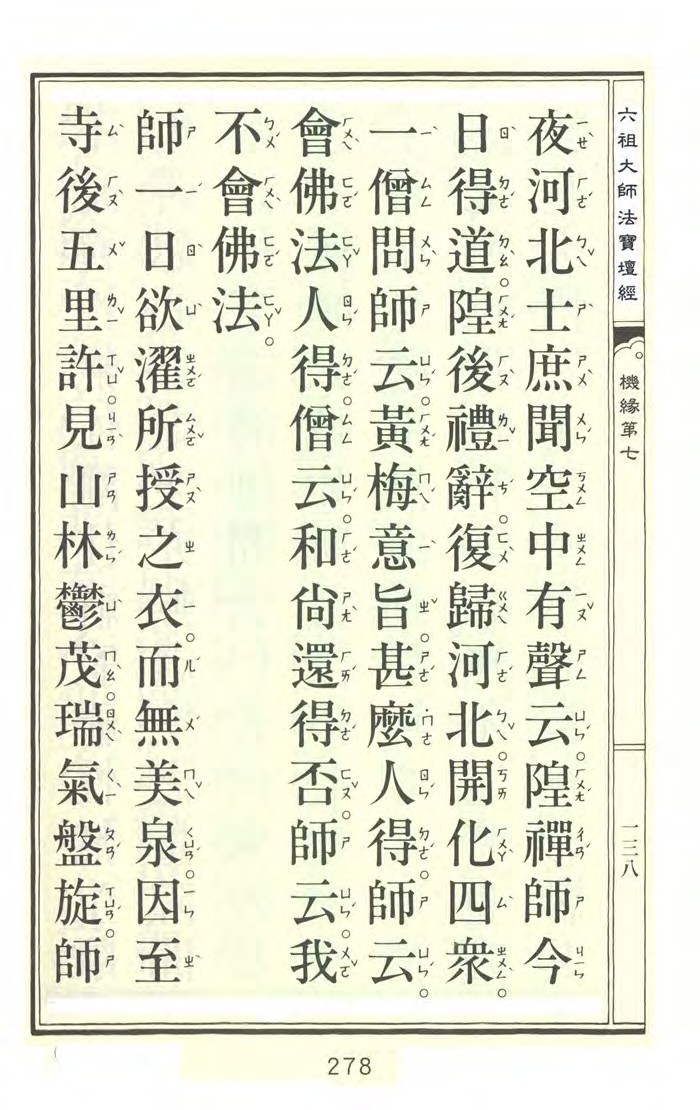 六祖大師法寶壇經
機緣第七
一三八
夜河北士庶聞空中有聲云。隍禪師今
日得道。隍後禮辭。復歸河北。開化四衆。
一僧問師云。黃梅意旨。甚麼人得。師云。
會佛法人得。僧云。和尙還得否。師云。我
不會佛法。
師一日欲濯所授之衣。而無美泉。因至
寺後五里許。見山林鬱茂。瑞氣盤旋。師
278